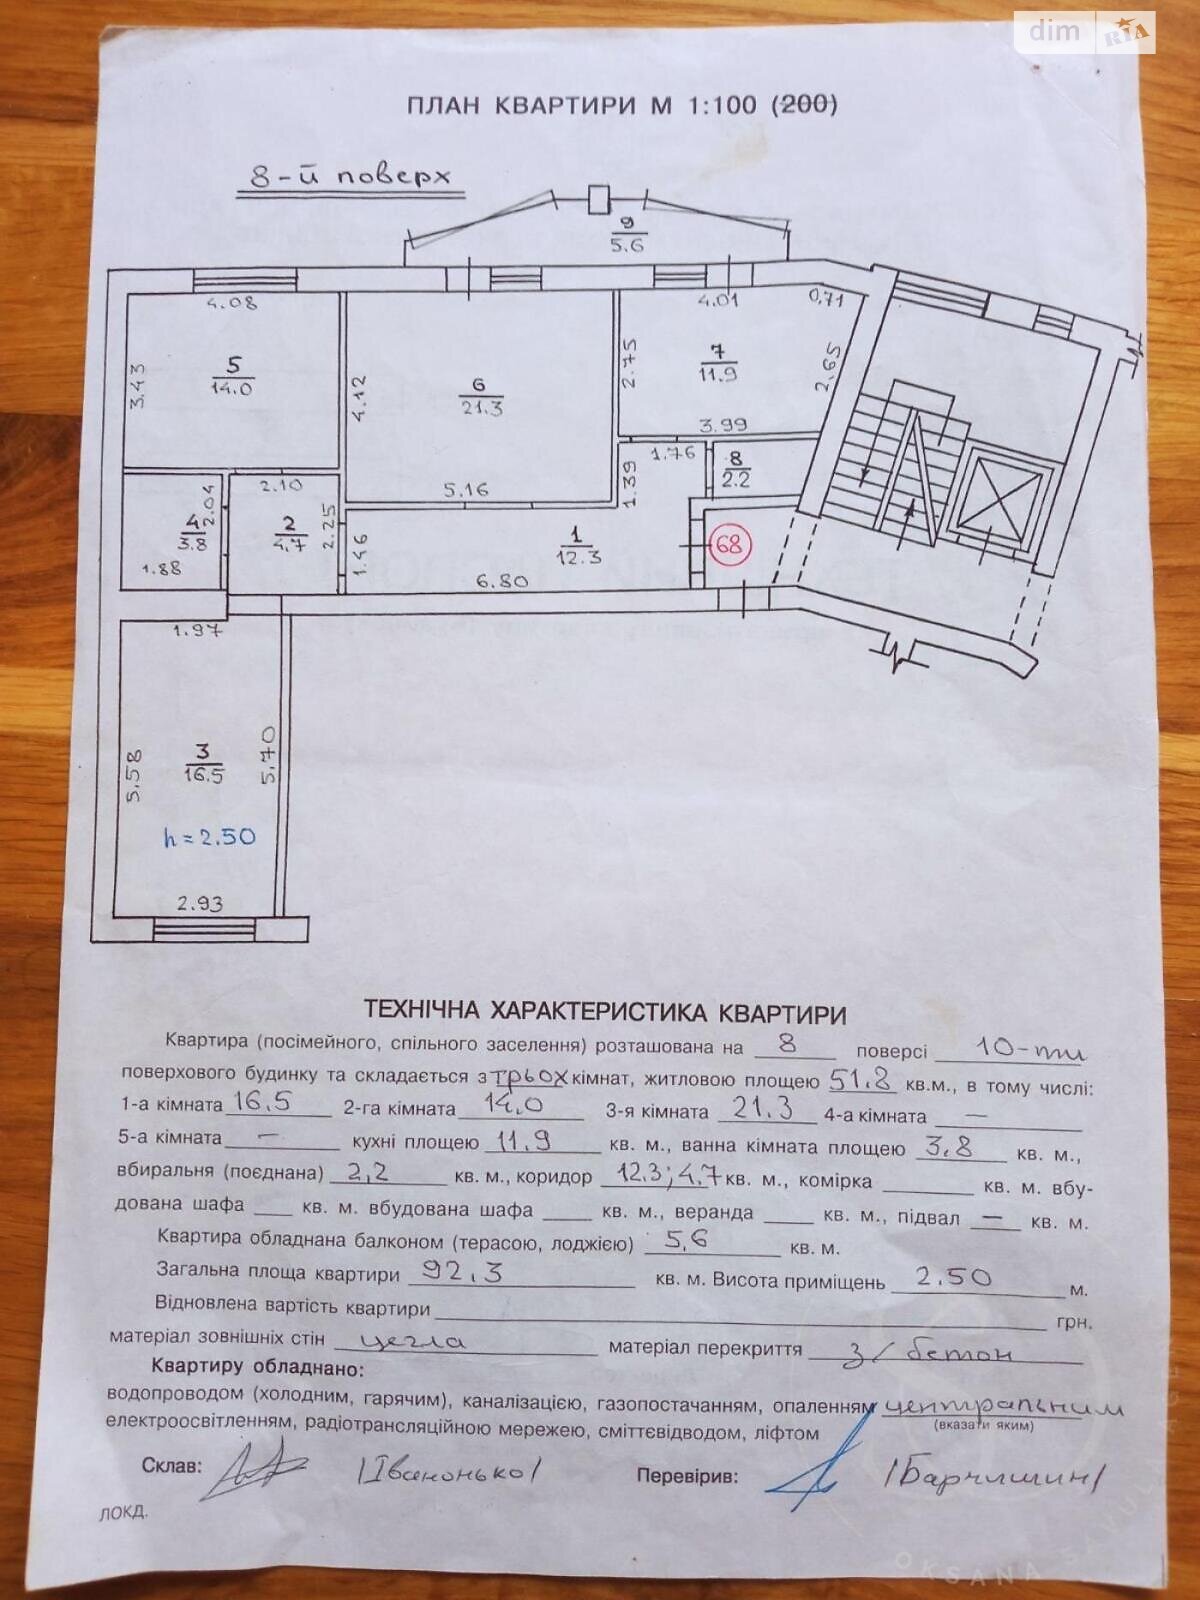 dim RIA
ПЛАН КВАРТИРИ М 1:100 (200)
8-й поверх
9
5.6
4.08
4.01
0,71
5
14.0
3.43
4.12
6
21.3
2.75
7
11.9
2.65
3.99
1.76
8
2.2
1.39
5.16
2.10
2.04
4
3.8
2
4.7
2.25
1.46
1
12.3
68
1.88
6.80
1.97
3
16.5
5.58
5.70
h = 2.50
2.93
ТЕХНІЧНА ХАРАКТЕРИСТИКА КВАРТИРИ
Квартира (посімейного, спільного заселення) розташована на 8 поверсі 10-ти
поверхового будинку та складається з трьох кімнат, житловою площею 51.8 кв.м., в тому числі:
1-а кімната 16.5 2-га кімната 14,0 3-я кімната 21.3 4-а кімната —
5-а кімната — кухні площею 11.9 кв. м., ванна кімната площею 3.8 кв. м.,
вбиральня (поєднана) 2,2 кв. м., коридор 12.3; 4.7 кв. м., комірка кв. м. вбу-
дована шафа кв. м. вбудована шафа кв. м., веранда кв. м., підвал — кв. м.
Квартира обладнана балконом (терасою, лоджією) 5,6 кв. м.
Загальна площа квартири 92,3 кв. м. Висота приміщень 2.50 м.
Відновлена вартість квартири грн.
матеріал зовнішніх стін цегла матеріал перекриття з/бетон
Квартиру обладнано:
водопроводом (холодним, гарячим), каналізацією, газопостачанням, опаленням центральним
(вказати яким)
електроосвітленням, радіотрансляційною мережею, сміттєвідводом, ліфтом
Склав: /Іванонько/ Перевірив: /Барчишин/
ЛОКД.
OKSANA